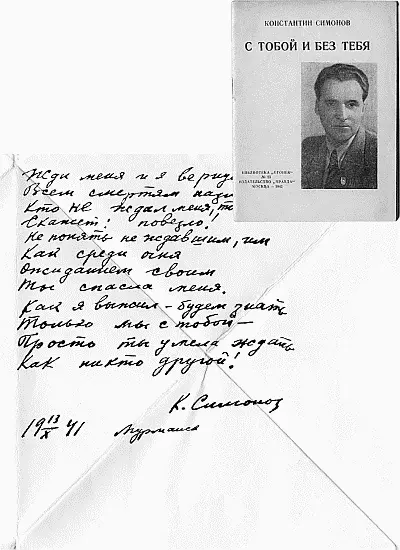 КОНСТАНТИН СИМОНОВ
С ТОБОЙ И БЕЗ ТЕБЯ
БИБЛИОТЕКА „ОГОНЕК“
ИЗДАТЕЛЬСТВО „ПРАВДА“
МОСКВА – 1942
Жди меня и я
Всем смертям
Кто не ждал меня,
Скажет: повезло.
Не понять не ждавшим, им
Как среди огня
Ожиданием своим
Ты спасла меня.
Как я выжил – будем знать
Только мы с тобой –
Просто ты умела ждать
Как никто другой!
К. Симонов
19 13/X 41 Мурманск